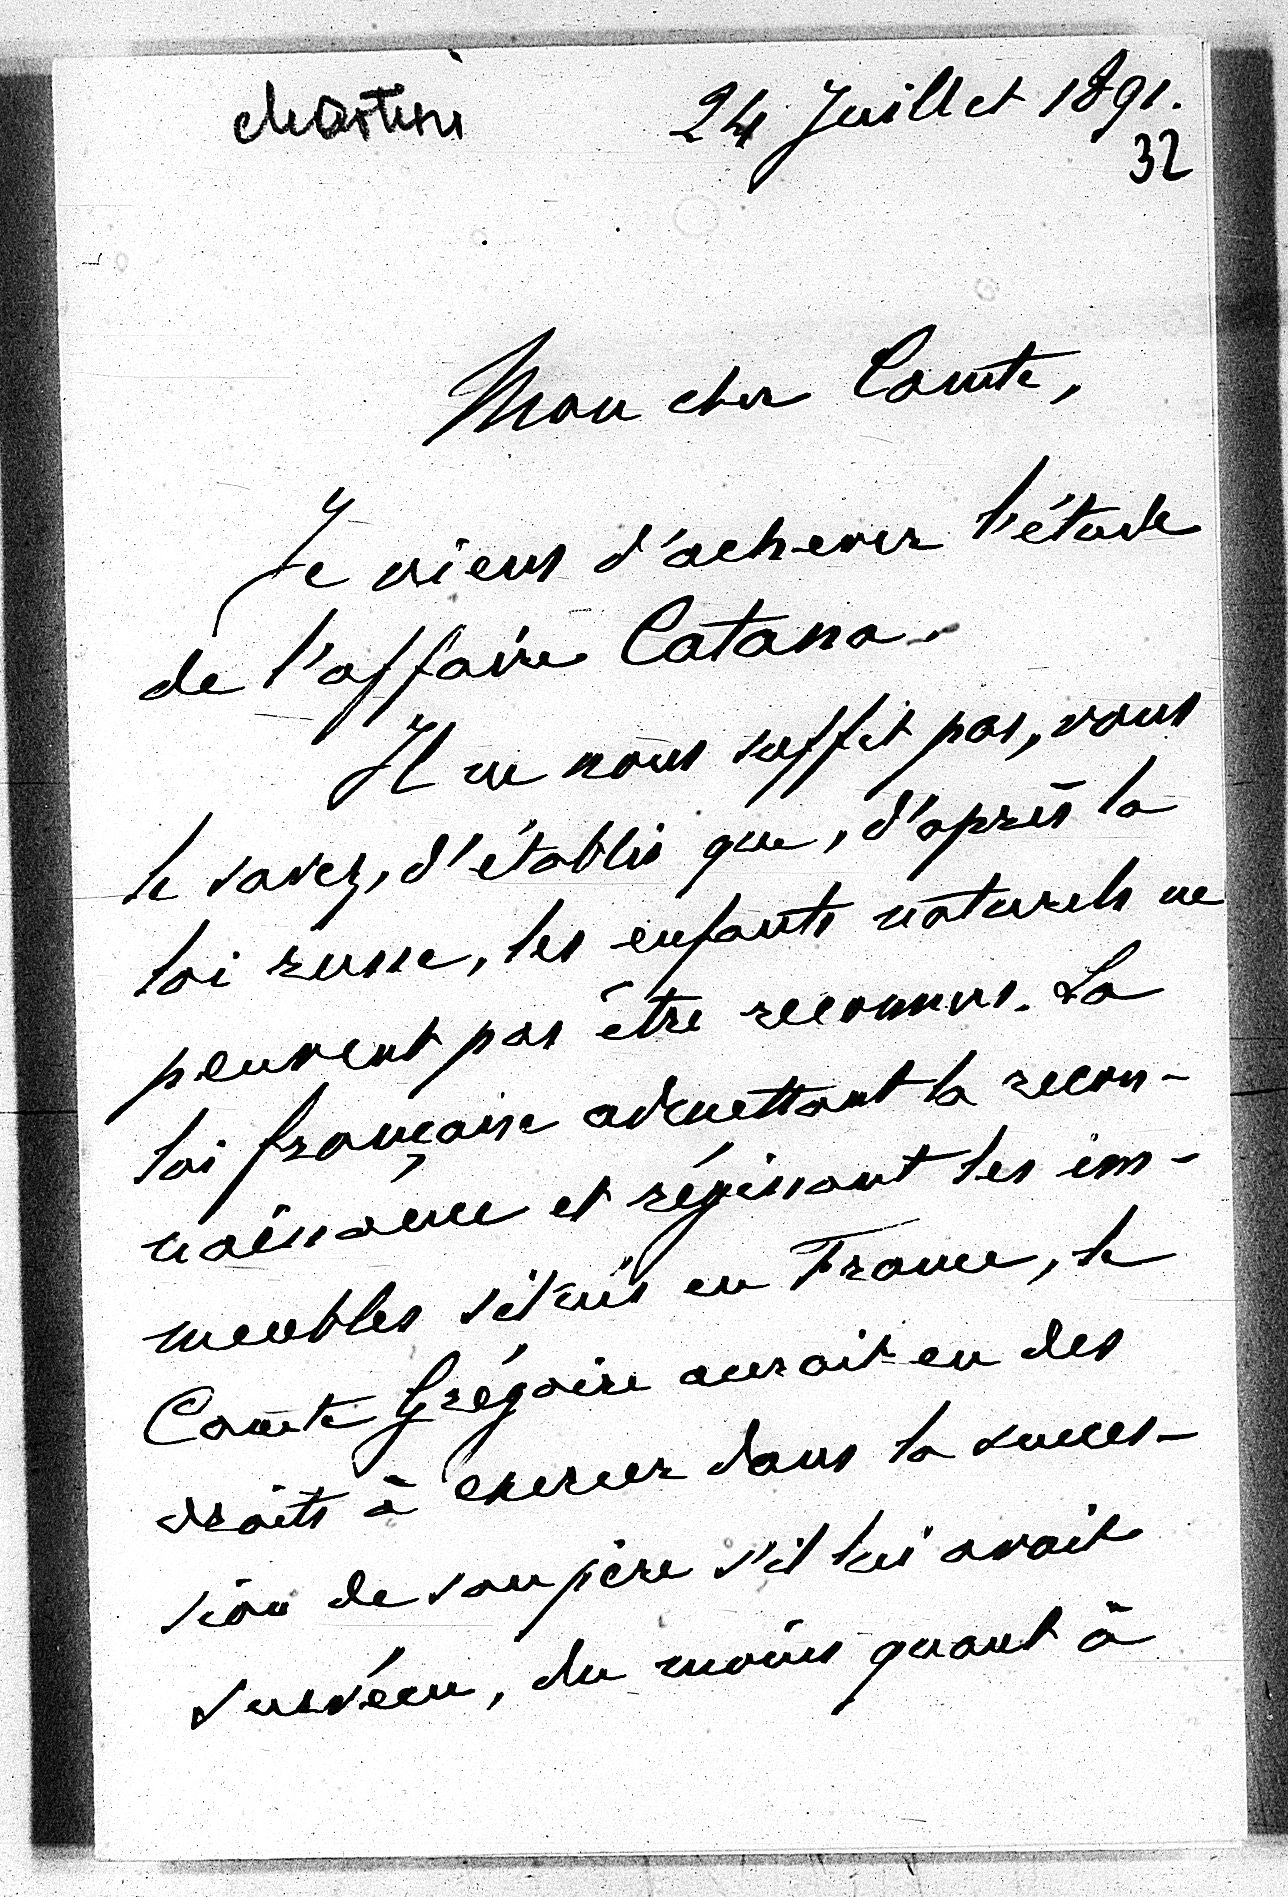 Martini
24 Juillet 1891.
32
Mon cher Comte,
Je viens d'achever l'étude
de l'affaire Catana.
Il ne nous suffit pas, vous
le savez, d'établir que, d'après la
loi russe, les enfants naturels ne
peuvent pas être reconnus. La
loi française admettant la recon-
naissance et régissant les im-
meubles situés en France, le
Comte Grégoire aurait eu des
droits à exercer dans la succes-
sion de son père s'il lui avait
survécu, du moins quant à